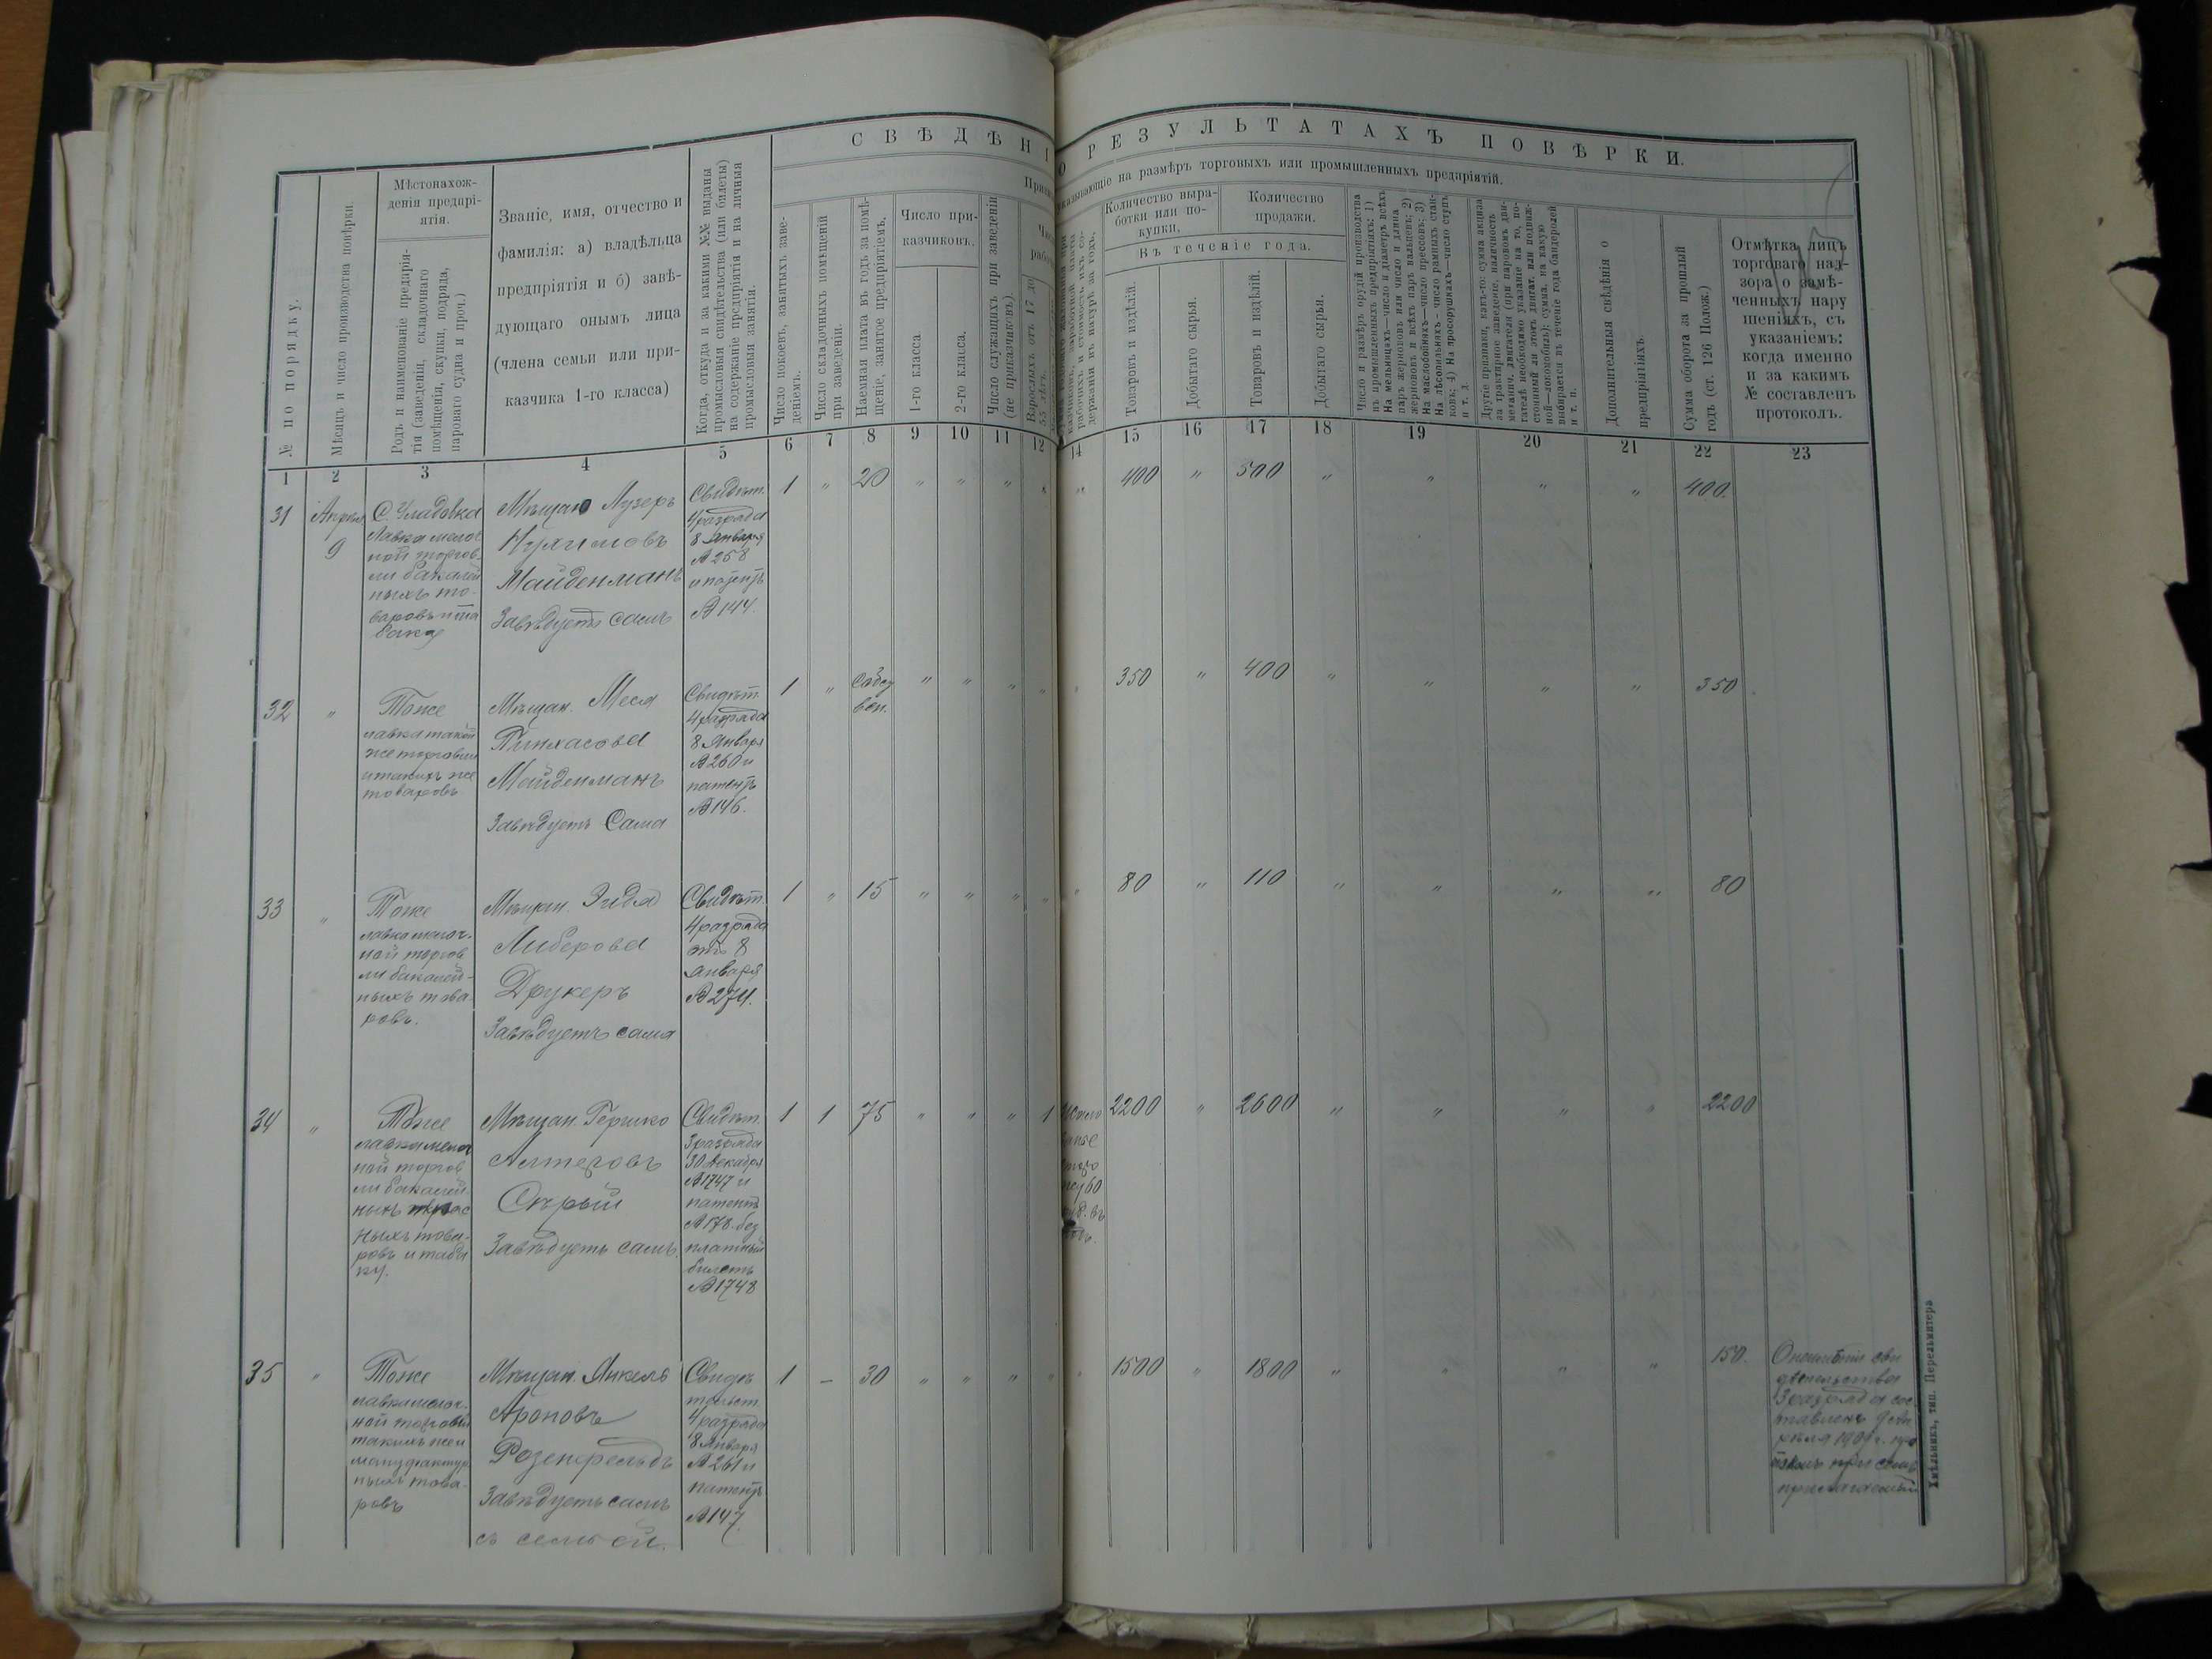 СВѢДѢНІ
О РЕЗУЛЬТАТАХЪ ПОВѢРКИ.
казывающіе на размѣръ торговыхъ или промышленныхъ предпріятій.
№ по порядку.
Мѣсяцъ и число производства повѣрки.
Мѣстонахож-
денія предпрі-
ятія.
Родъ и наименованіе предпрія-
тія (заведенія, складочнаго
помѣщенія, скупки, подряда,
парового судна и проч.)
Званіе, имя, отчество и
фамилія: а) владѣльца
предпріятія и б) завѣ-
дующаго онымъ лица
(члена семьи или при-
казчика 1-го класса)
Когда, откуда и за какими №№ выданы
промысловыя свидѣтельства (или билеты)
на содержаніе предпріятія и на личныя
промысловыя занятія.
Число покоевъ, занятыхъ заве-
деніемъ.
Число складочныхъ помѣщеній
при заведеніи.
Наемная плата въ годъ за помѣ-
щеніе, занятое предпріятіемъ.
Число при-
казчиковъ.
1-го класса.
2-го класса.
Число служащихъ при заведеніи
(не приказчиковъ).
Взрослыхъ отъ 17 до
55 лѣтъ.
Количество выра-
ботки или по-
купки,
Количество
продажи.
Въ теченіе года.
Товаровъ и издѣлій.
Добытаго сырья.
Товаровъ и издѣлій.
Добытаго сырья.
Число и размѣръ орудій производства
въ промышленныхъ предпріятіяхъ: 1)
На мельницахъ—число и діаметръ всѣхъ
паръ жернововъ или число и длина
жернововъ и всѣхъ паръ вальцевъ; 2)
На маслобойняхъ—число прессовъ; 3)
На лѣсопильняхъ - число рамныхъ стан-
ковъ; 4) На просорушкахъ—число ступъ
и т. д.
Другіе признаки, какъ-то: сумма акциза
за трактирное заведеніе, наличность
механич. двигателя (при паровомъ дви-
гателѣ необходимо указаніе на то, по-
стоянный ли этотъ двигат. или подвиж-
ной—локомобиль); сумма, на какую
выбирается въ теченіе года бандеролей
и т. п.
Дополнительныя свѣдѣнія о
предпріятіяхъ.
Сумма оборота за прошлый
годъ (ст. 126 Полож.)
Отмѣтка лицъ
торговаго над-
зора о замѣ-
ченныхъ нару
шеніяхъ, съ
указаніемъ:
когда именно
и за какимъ
№ составленъ
протоколъ.
1 2 3 4 5 6 7 8 9 10 11 12 14 15 16 17 18 19 20 21 22 23
31
Апрѣля
9
С. Уладовка
Лавка мелоч
ной торгов
ли бакалей
ныхъ то-
варовъ и та
баку
Мѣщан Лузеръ
Майденманъ
Завѣдуетъ самъ
Свидѣт.
4 разряда
8 Января
№ 258
и патентъ
№ 144.
1 „ 20 „ „ „ „ „ 400 „ 500 „ „ „ „ 400.
32
„
Тоже
лавка такой
же торговли
и такихъ же
товаровъ.
Мѣщан. Меся
Пинхасова
Майденманъ
Завѣдуетъ Сама
Свидѣт.
4 разряда
8 Января
№ 260 и
патентъ
№ 146.
1 „ Собст
вен. „ „ „ „ „ 350 „ 400 „ „ „ „ 350
33
„
Тоже
лавка мелоч-
ной торгов
ли бакалей-
ныхъ това-
ровъ.
Мѣщан. Зидя
Либерова
Друкеръ
Завѣдуетъ сама
Свидѣт.
4 разряда
отъ 8
Января
№ 274.
1 „ 15 „ „ „ „ „ 80 „ 110 „ „ „ „ 80
34
„
Тоже
лавка мелоч
ной торгов
ли бакалей
ныхъ
ныхъ това-
ровъ и таба
ку.
Мѣщан. Гершко
Алтеровъ
Сѣрый
Завѣдуетъ самъ.
Свидѣт.
3 разряда
30 Декабря
№ 1747 и
патентъ
№ 178. без
платный
билетъ
№ 1748
1 1 75 „ „ „ 1 2200 „ 2600 „ „ „ „ 2200
35
„
Тоже
лавка мелоч-
ной торговли
такихъ же и
мануфактур
ныхъ това-
ровъ
Мѣщан. Янкель
Ароновъ
Розенфельдъ
Завѣдуетъ самъ
съ семьей.
Свидѣ
тельст.
4 разряда
8 Января
№ 261 и
патентъ
№ 147.
1 – 30 „ „ „ „ „ 1500 „ 1800 „ „ „ „ 150.
сви
дѣтельства
3 разряда сос
тавленъ 9 Ап
рѣля 190 г. про
токолъ при семъ
прилагаемый
Хмѣльникъ, тип. Перельмитера